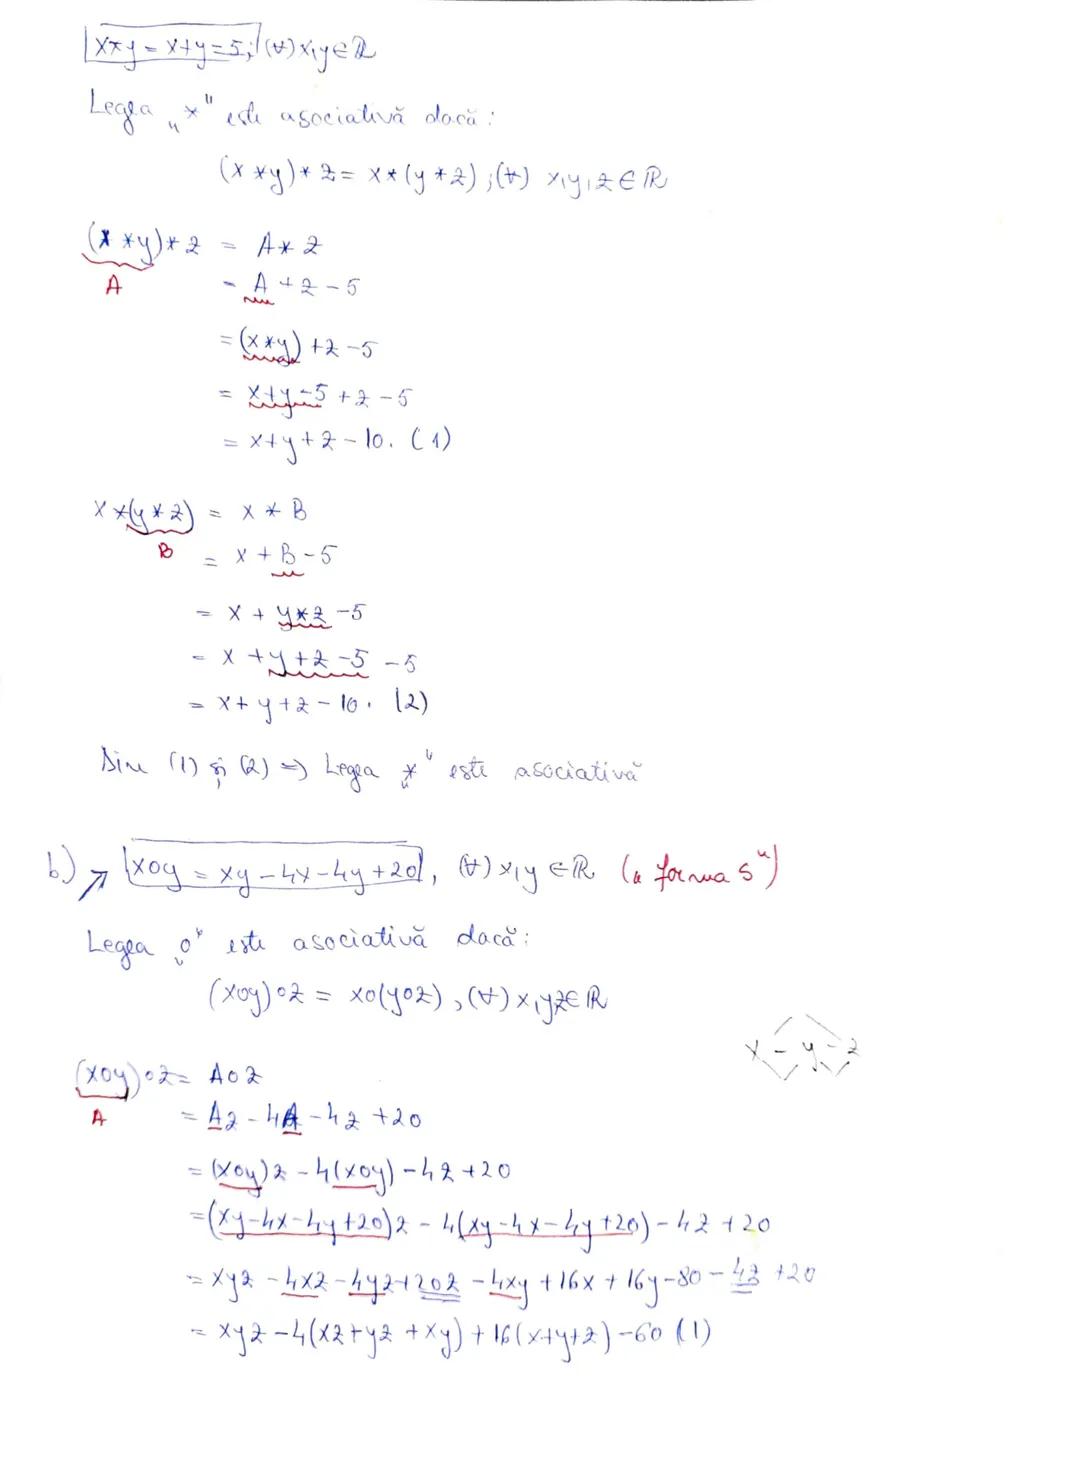 x*y = x+y=5; (∀) x,y∈R
Legea „*" este asociativă dacă:
(x*y)*z = x*(y*z); (∀) x,y,z ∈ R
(x*y)*z = A*z
A
= A+z-5
= (x*y)+z-5
= x+y-5+z-5
= x+y+z-10. (1)
x*(y*z) = x*B
B
= x+B-5
= x+y*z-5
= x+y+z-5-5
= x+y+z-10. (2)
Din (1) și (2) => Legea „*" este asociativă
b) ↗ xoy = xy-4x-4y+20, (∀) x,y ∈ R („forma S")
Legea „o" este asociativă dacă:
(xoy)oz = xo(yoz), (∀) x,yz∈R
x - y - z
(xoy)oz = Aoz
A
= Az-4A-4z+20
= (xoy)z-4(xoy)-4z+20
= (xy-4x-4y+20)z-4(xy-4x-4y+20)-4z+20
= xyz-4xz-4yz+20z-4xy+16x+16y-80-4z+20
= xyz-4(xz+yz+xy)+16(x+y+z)-60 (1)